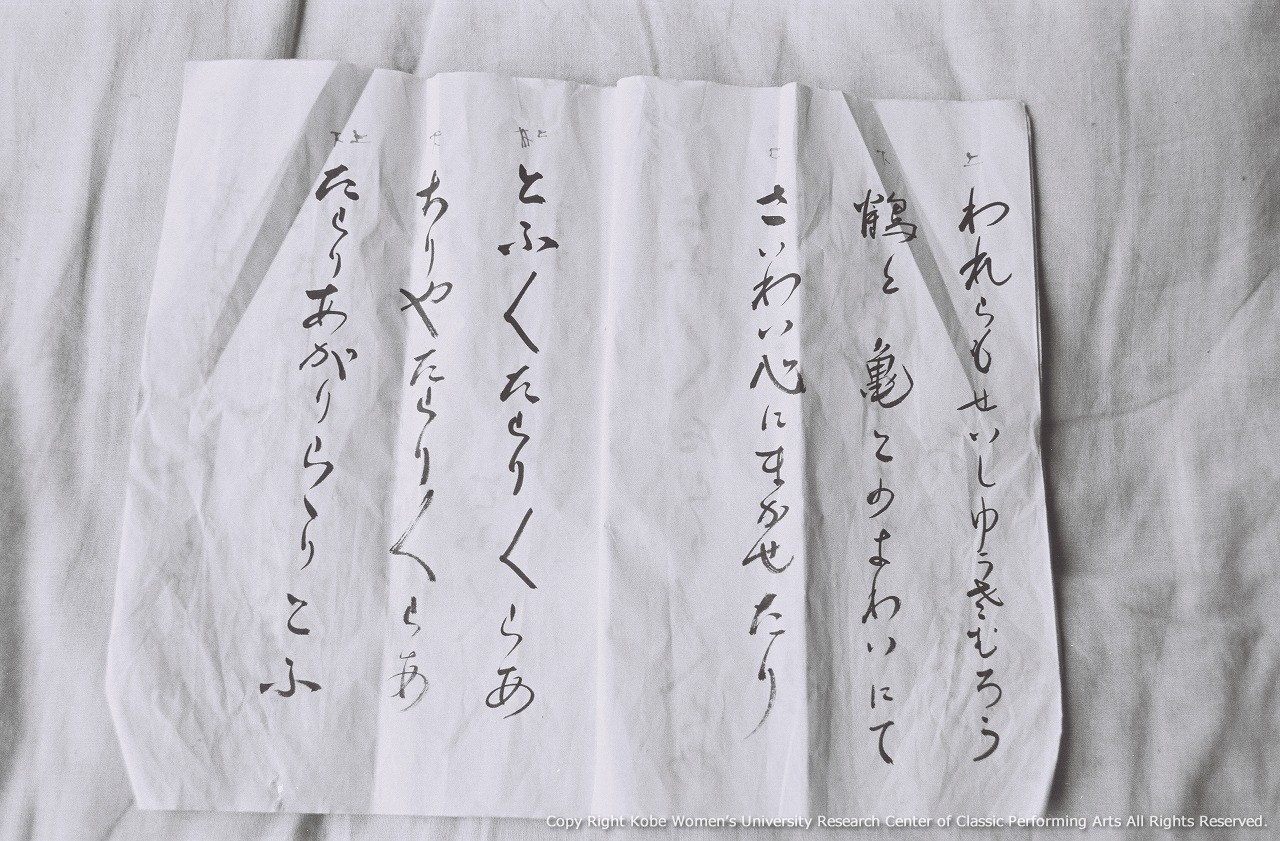 われらもせいしゆうさむろう
鶴と亀とのよわいにて
さいわい心にまかせたり
とふ〱たらり〱らあ
ちりやたらり〱らあ
たらりあがりらゝりとふ
Copy Right Kobe Women's University Research Center of Classic Performing Arts All Rights Reserved.